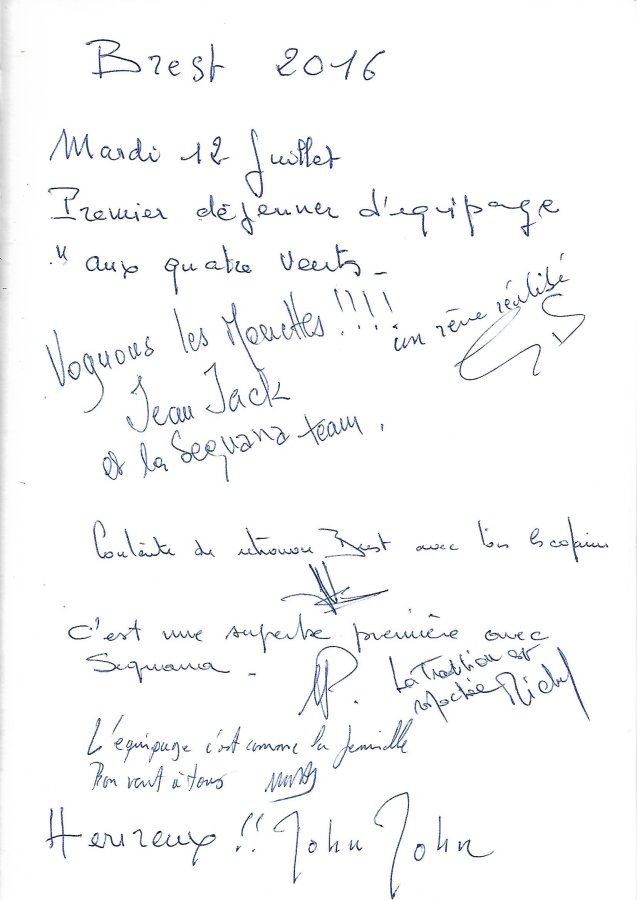 Brest 2016
Mardi 12 Juillet
Premier déjeuner d'equipage
" aux quatre vents -
Voguons les Mouettes !!!!
un rêve réalisé
Jean Jack
et la Sequana team.
Contente de retrouver Brest avec les
c'est une superbe première avec
Sequana -
MP.
La Tradition est
respectée Michel
L'équipage c'est comme la famille
Bon vent à tous
Heureux !! John John